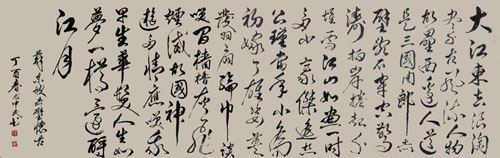 大江東去浪淘
盡千古風流人物
故壘西邊人道
是三國周郎赤
壁亂石穿空驚
濤拍岸捲起千
堆雪江山如畫一時
多少豪傑遙想
公瑾當年小喬
初嫁了雄姿英
發羽扇綸巾談
笑間檣櫓灰飛
煙滅故國神
遊多情應笑我
早生華髮人生如
夢一樽還酹
江月
蘇東坡赤壁懷古
丁酉春